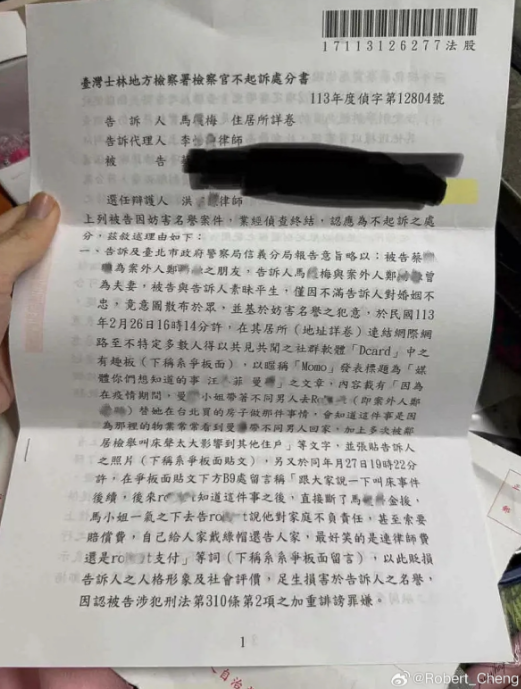 17113126277法股
臺灣士林地方檢察署檢察官不起訴處分書
113年度偵字第12804號
告訴人 馬 梅 住居所詳卷
告訴代理人 李 律師
被 告
選任辯護人 洪 律師
上列被告因妨害名譽案件,業經偵查終結,認應為不起訴之處
分,茲敘述理由如下:
一、告訴及臺北市政府警察局信義分局報告意旨略以:被告蔡
為案外人鄭 之朋友,告訴人馬 梅與案外人鄭 曾
為夫妻,被告與告訴人素昧平生,僅因不滿告訴人對婚姻不
忠,竟意圖散布於眾,並基於妨害名譽之犯意,於民國113
年2月26日16時14分許,在其居所(地址詳卷)連結網際網
路至不特定多數人得以共見共聞之社群軟體「Dcard」中之
有趣板(下稱系爭板面),以暱稱「Momo」發表標題為「媒
體你們想知道的事 汪 菲 曼 」之文章,內容載有「因為
在疫情期間,曼 小姐帶著不同男人去Ro (即案外人鄭
)替她在台北買的房子做那件事情,會知道這件事是因
為那裡的物業常常看到曼 帶不同男人回家,加上多次被鄰
居檢舉叫床聲太大影響到其他住戶」等文字,並張貼告訴人
之照片(下稱系爭板面貼文),另又於同年月27日19時22分
許,在爭板面貼文下方B9處留言稱「跟大家說一下叫床事件
後續,後來ro t知道這件事之後,直接斷了馬 金後,
馬小姐一氣之下去告ro t說他對家庭不負責任,甚至索要
賠償費,自己給人家戴綠帽還告人家,最好笑的是連律師費
還是ro t支付」等詞(下稱系系爭板面留言),以此貶損
告訴人之人格形象及社會評價,足生損害於告訴人之名譽,
因認被告涉犯刑法第310條第2項之加重誹謗罪嫌。
1
@Robert_Cheng